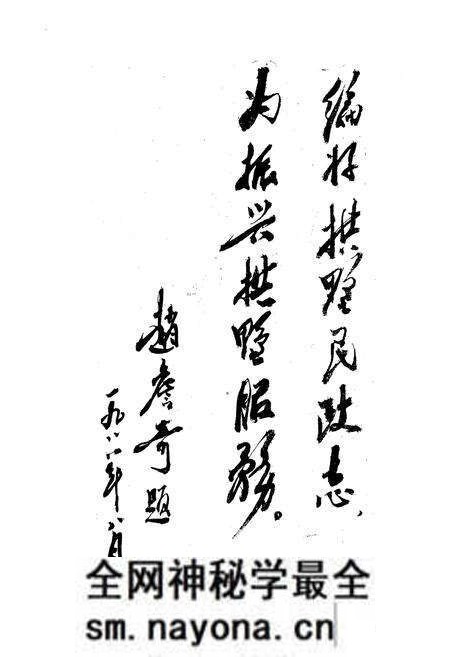 编好拱墅民政志，
为振兴拱墅服務。
趙詹奇题
一九八八年八月
全网神秘学最全
sm.nayona.cn